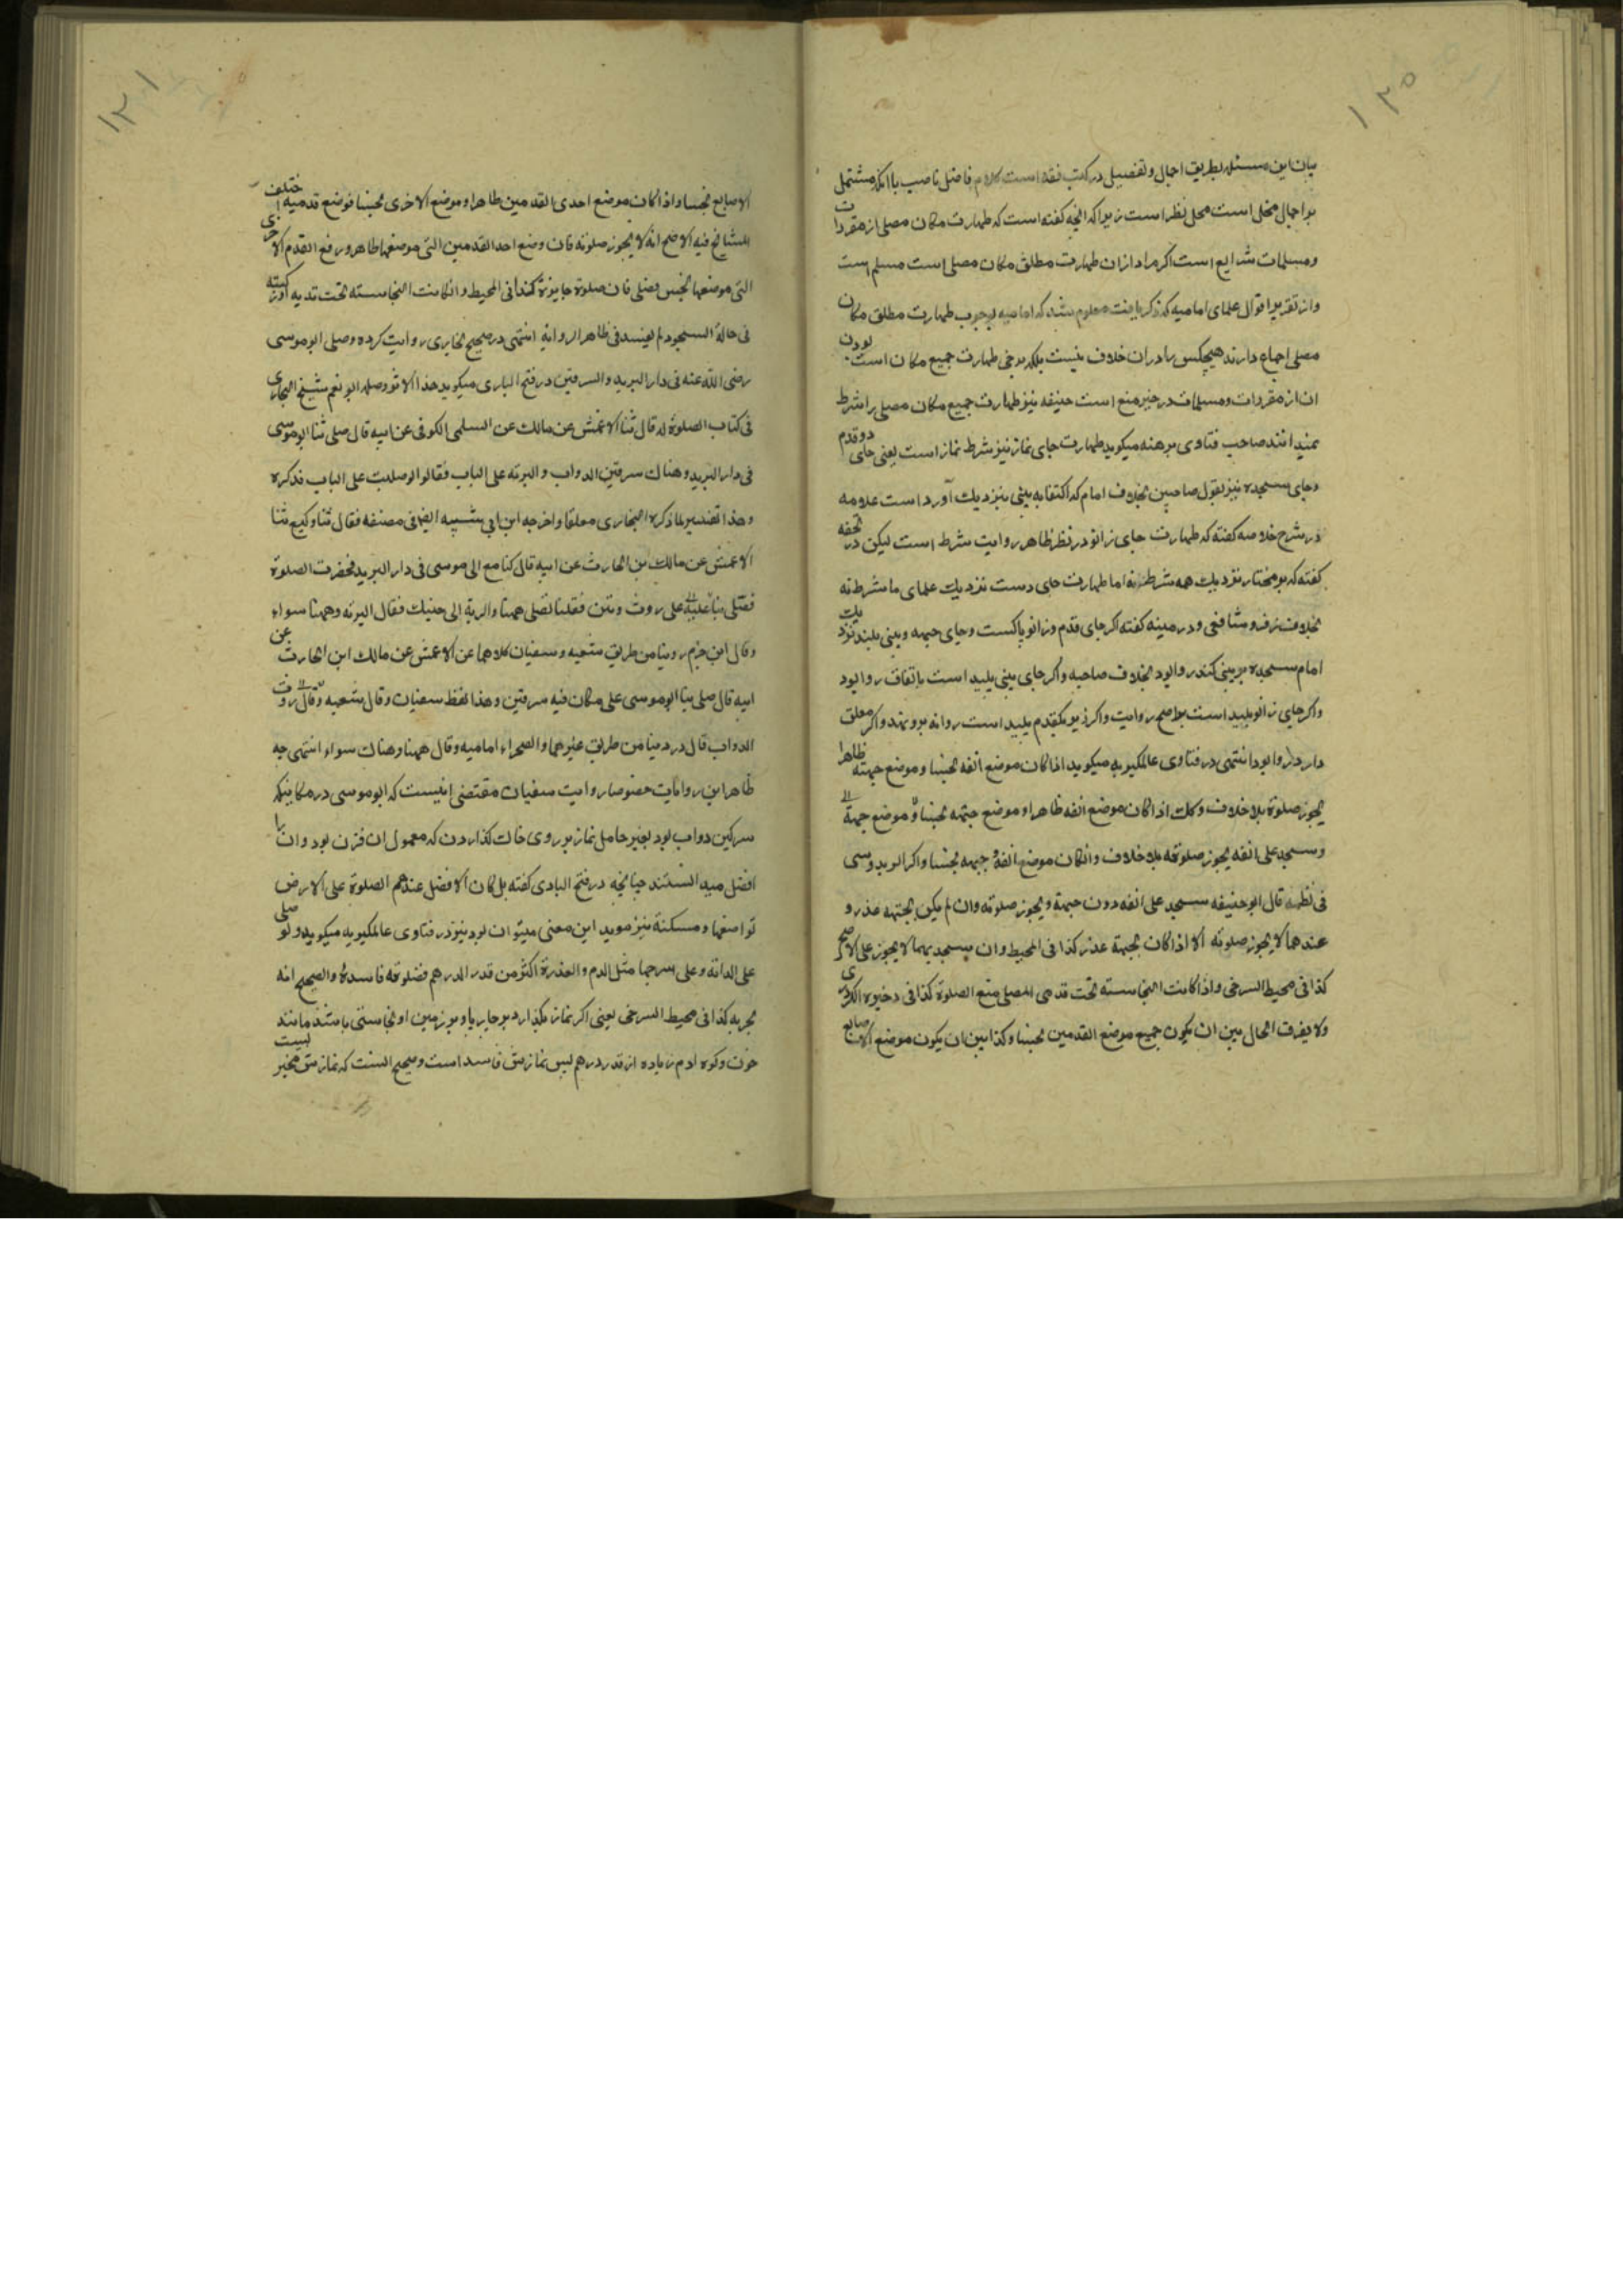 ۱۲۰
بیان این مسئله بطریق اجمال و تفصیل در کتب فقه است کلام فاضل ناصب با انکه مشتمل
بر اجمال مخل است محل نظر است زیرا که انچه کفته است که طهارت مکان مصلی از مقردات
و مسلمات شرایع است اکر مراد ازان طهارت مطلق مکان مصلی است مسلم است
و از تقریر اقوال علمای امامیه که ذکر یافت معلوم شد که امامیه بوجوب طهارت مطلق مکان
مصلی اجماع دارند هیچکس را دران خلاف نیست بلکه برخی طهارت جمیع مکان است بودن
ان از مقردات و مسلمات در حیز منع است حنیفه نیز طهارت جمیع مکان مصلی را شرط
نمیدانند صاحب فتاوی برهنه میکوید طهارت جای نماز نیز شرط نماز است یعنی جای دو قدم
و جای سجده نیز بقول صاحبین بخلاف امام که اکتفا به بینی نزدیک آورد است علامه
در شرح خلاصه کفته که طهارت جای زانو در نظر ظاهر روایت شرط است لیکن در تحفه
کفته که بر مختار نزدیک همه شرط نه اما طهارت جای دست نزدیک علمای ما شرط نه
بخلاف زفر و شافعی و در مینه کفته اکر جای قدم و زانو پاکست و جای جبهه و بینی پلید نزدیک
امام سجده بر بینی کند روا بود بخلاف صاحبه و اکر جای بینی پلید است باتفاق روا بود
و اکر جای زانو پلید است بر اصح روایت و اکر زیر یکقدم پلید است روا نه برو نهد و اکر معلق
دارد روا بود انتهی در فتاوی عالمکیریه میکوید اذا کان موضع انفه نجسا و موضع جبهته طاهرا
یجوز صلوة بلا خلاف و کک اذا کان موضع انفه طاهرا و موضع جبته نجسا و موضع جبهة
و سجد علی انفه یجوز صلوته بلا خلاف و انکان موضع انفه و جبهه نجسا و اکر الویدوسی
فی نظمه قال ابو حنیفه سجد علی انفه دون جبهة و یجوز صلوته وان لم یکن بجبته عذر و
عندهما لا یجوز صلوته الا اذا کان بجبهة عذر کذا فی المحیط وان سجد بهما لا یجوز علی الاصح
کذا فی محیط السرخی و اذا کانت النجاسته تحت قدمی المصلی منع الصلوة کذا فی وجیزه الکردری
ولا یفرق الحال بین ان یکون جمیع موضع القدمین نجسا و کذا بین ان یکون موضع الاصابع
۱۲۱
الاصابع نجسا و اذا کان موضع احدی القدمین طاهرا و موضع الاخری نجسا فوضع قدمیه اختلف
المشایخ فیه الاصح انه لا یجوز صلوته فان وضع احد القدمین التی موضعها طاهر و رفع القدم الاخری
التی موضعها نجس فصلی فان صلوة جایزة کذا فی المحیط و انکانت النجاسته تحت یدیه او رکبتیه
فی حالة السجود لم یفسد فی ظاهر الروایة انتهی در صحیح بخاری روایت کرده وصلی ابو موسی
رضی الله عنه فی دار البرید و السرقین در فتح الباری میکوید هذا الاثر وصله ابو نعم شیخ البخاری
فی کتاب الصلوة له قال ثنا الاعمش عن مالک عن السلمی الکوفی عن ابیه قال صلی ثنا ابو موسی
فی دار البرید و هناک سرقین الدواب و البریه علی الباب فقالوا لو صلیت علی الباب فذکره
و هذا تفسیر لما ذکره البخاری معلقا و اخرجه ابن ابی شیبه ایضا فی مصنفه فقال ثنا وکیع ثنا
الاعمش عن مالک بن الحارث عن ابیه قال کنا مع ابی موسی فی دار البرید فحضرت الصلوة
فصلی بنا علی روث و تبن فقلنا تصلی ههنا و البریة الی جنبک فقال البریه و ههنا سواء
و قال ابن حزم روینا من طریق شعبه و سفیان کلاهما عن الاعمش عن مالک ابن الحارث عن
ابیه قال صلی بنا ابو موسی علی مکان فیه سرقین و هذا لفظ سفیان و قال شعبه و قال روث
الدواب قال در دینا من طریق غیرهما و الصحراء امامیه و قال ههنا و هناک سواء انتهی چه
ظاهر این روایات خصوصا روایت سفیان مقتضی انیست که ابو موسی در مکانیکه
سرکین دواب بود بغیر حامل نماز بر روی خاک کذاردن که معمول ان قرن بود و ان را
افضل میدانستند چنانچه در فتح الباری کفته بل کان الافضل عندهم الصلوة علی الارض
تواضعا و مسکنة نیز موید این معنی میتوان بود نیز در فتاوی عالمکیریه میکوید و لو صلی
علی الدابة و علی سرجها مثل الدم و العذرة اکثر من قدر الدرهم فصلوته فاسدة و الصحیح انه
یجزیه کذا فی محیط السرخی یعنی اکر نماز بکذارد بر چارپا و بر زین او نجاستی باشد مانند
خون و کوه ادم زیاده از قدر درهم پس نمازش فاسد است و صحیح انست که نمازش مخیر
لیست